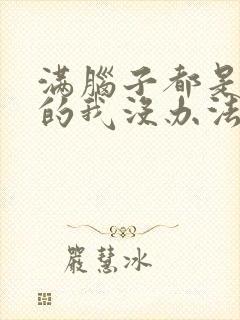 滿腦子都是
的我沒办法
嚴慧冰